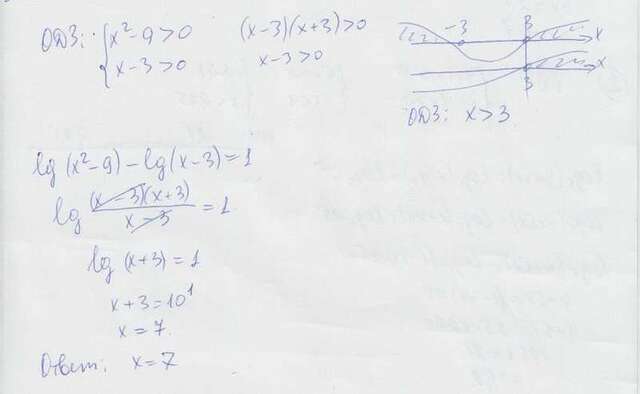 ОДЗ: { x² - 9 > 0 (x-3)(x+3) > 0
x - 3 > 0 x - 3 > 0
-3 3 x
3 x
ОДЗ: x > 3
lg (x² - 9) - lg (x - 3) = 1
lg (x - 3)(x + 3) / x - 3 = 1
lg (x + 3) = 1
x + 3 = 10¹
x = 7.
Ответ: x = 7